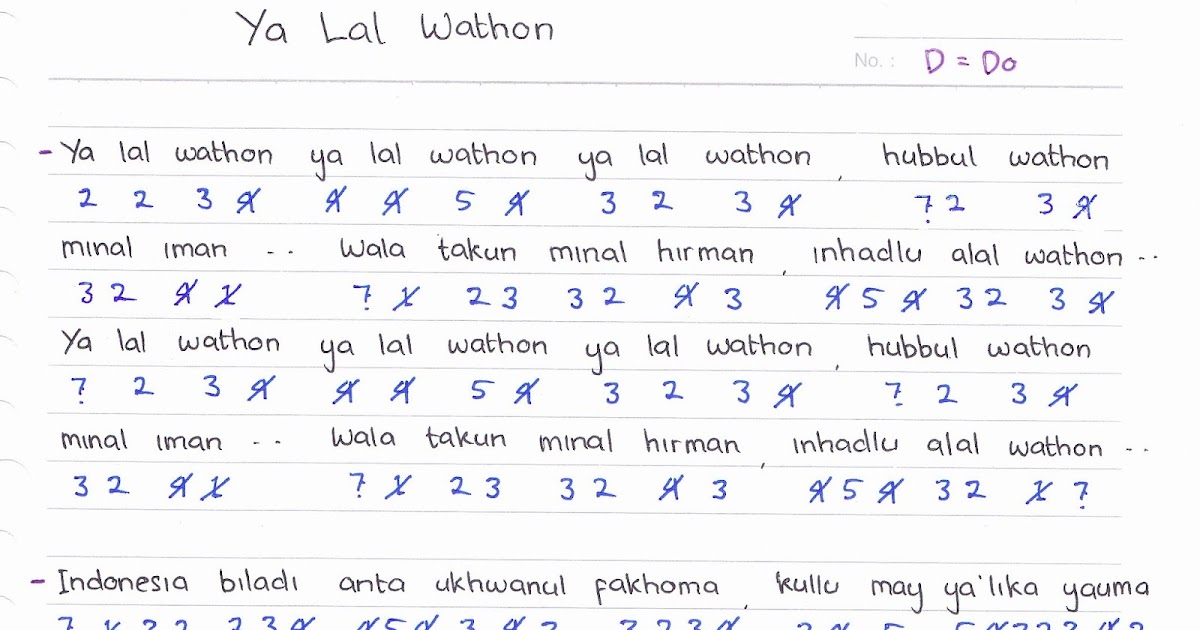 Ya Lal Wathon
No. : D = Do
- Ya lal wathon ya lal wathon ya lal wathon, hubbul wathon
2 2 3 4̸ 4̸ 4̸ 5 4̸ 3 2 3 4̸ 7̣ 2 3 4̸
minal iman .. wala takun minal hirman, inhadlu alal wathon ..
3 2 4̸ 1̸ 7̣ 1̸ 2 3 3 2 4̸ 3 4̸ 5 4̸ 3 2 3 4̸
Ya lal wathon ya lal wathon ya lal wathon, hubbul wathon
7̣ 2 3 4̸ 4̸ 4̸ 5 4̸ 3 2 3 4̸ 7̣ 2 3 4̸
minal iman .. wala takun minal hirman, inhadlu alal wathon ..
3 2 4̸ 1̸ 7̣ 1̸ 2 3 3 2 4̸ 3 4̸ 5 4̸ 3 2 1̸ 7̣
- Indonesia biladi anta ukhwanul fakhoma, kullu may ya'lika yauma